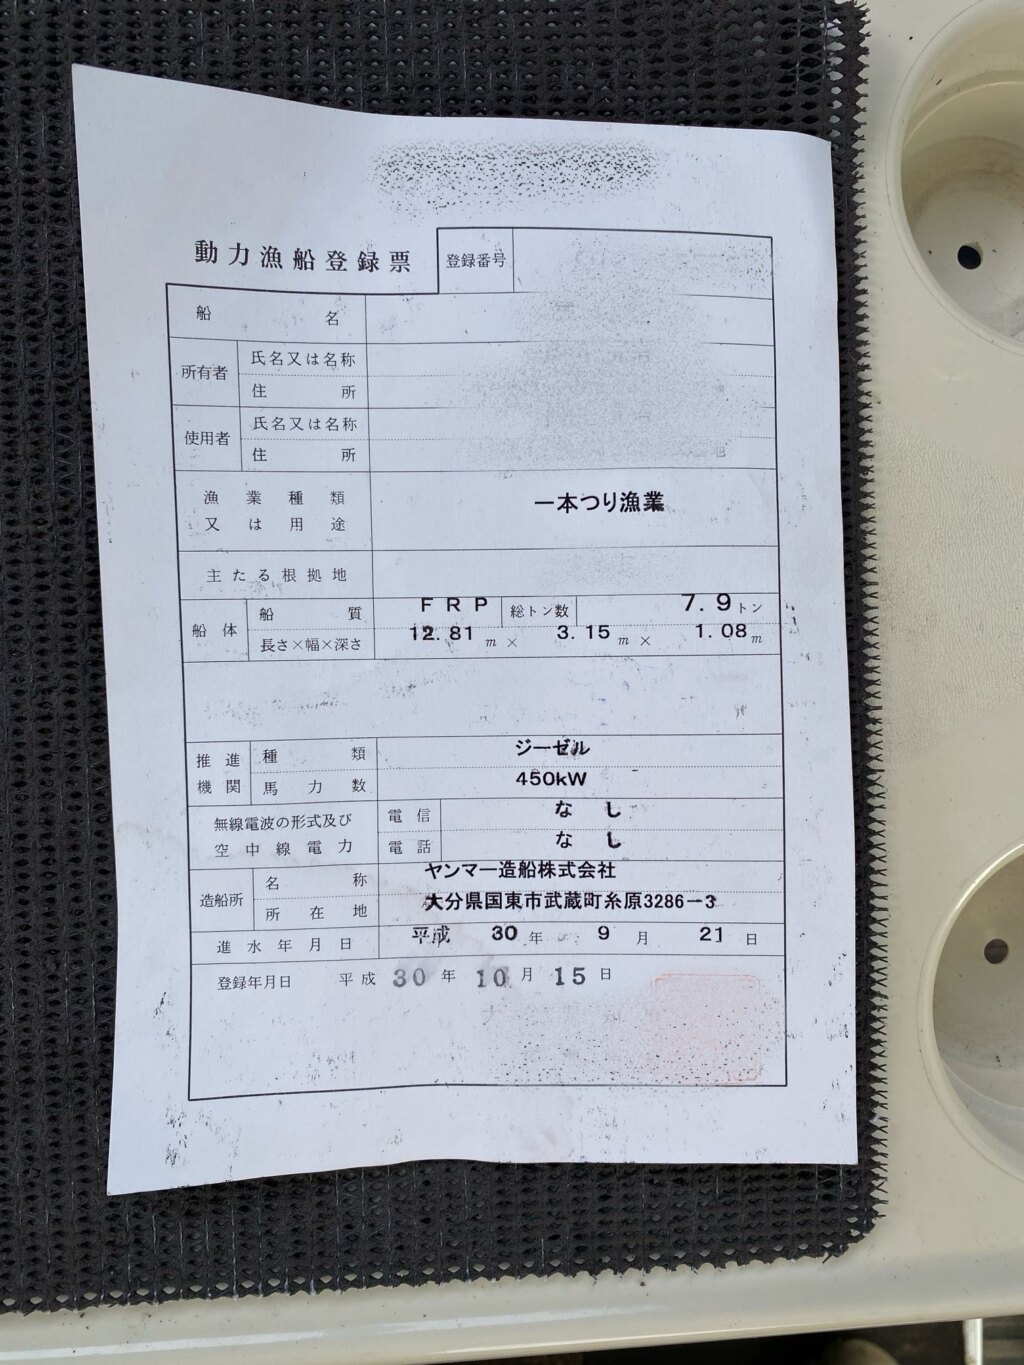 動力漁船登録票
登録番号
船名
所有者 氏名又は名称
住所
使用者 氏名又は名称
住所
漁業種類又は用途 一本つり漁業
主たる根拠地
船体 船質 FRP 総トン数 7.9トン
長さ×幅×深さ 12.81m × 3.15m × 1.08m
推進機関 種類 ジーゼル
馬力数 450kW
無線電波の形式及び空中線電力 電信 なし
電話 なし
造船所 名称 ヤンマー造船株式会社
所在地 大分県国東市武蔵町糸原3286-3
進水年月日 平成30年9月21日
登録年月日 平成30年10月15日